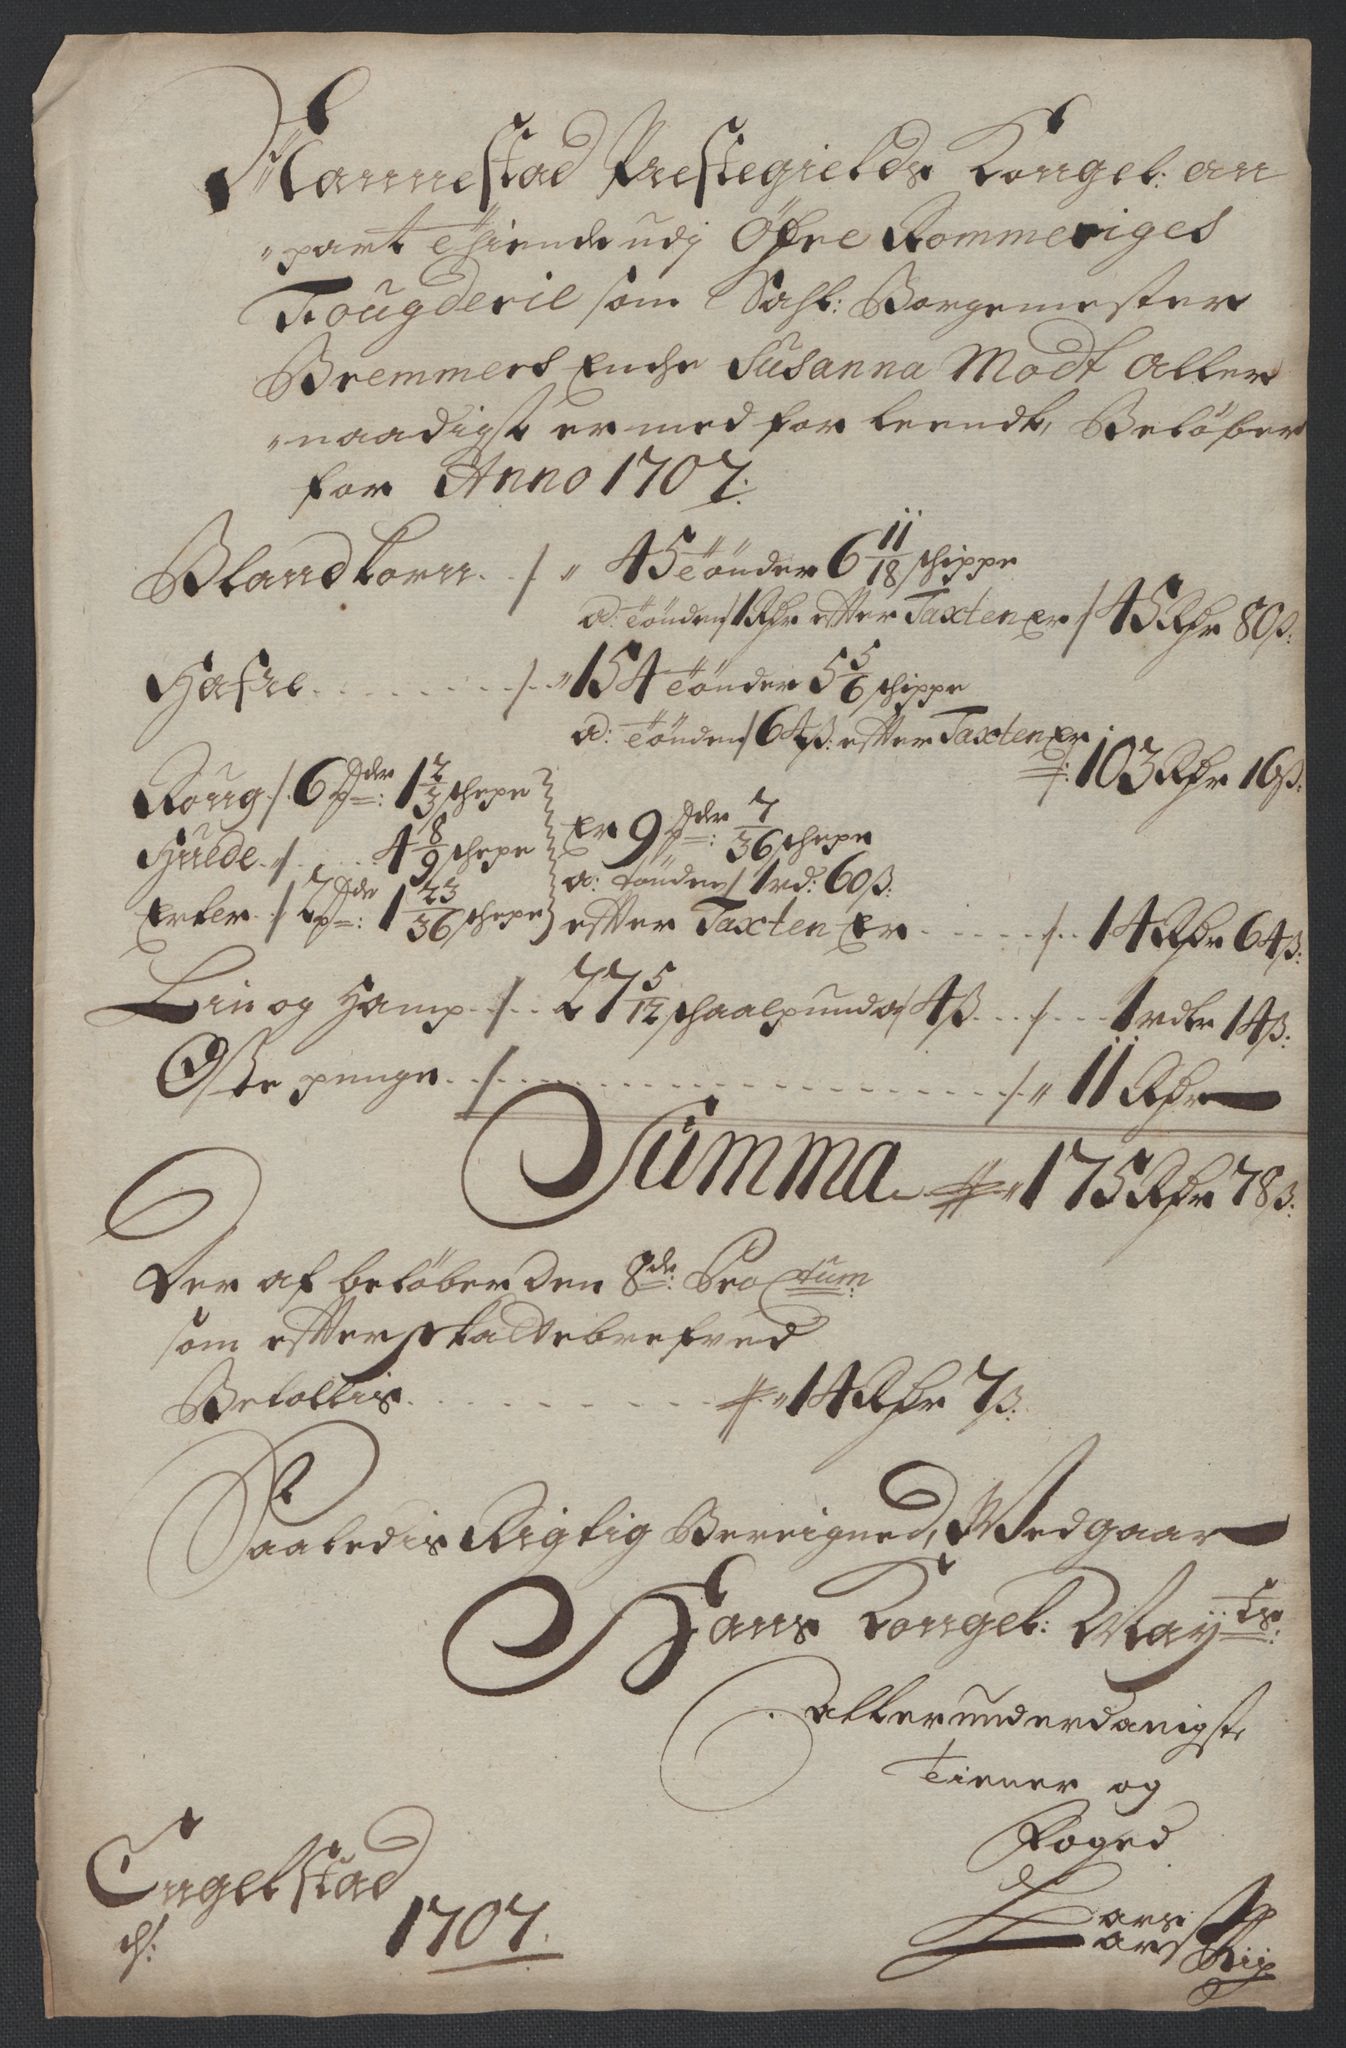 Nannestad Prestegields Kongel: an
"part Thiende udj Øfre Rommeriges
Fougderie som Sahl: Borgemester
Bremmers Enche Susanna Modt aller
"naadigst er med forleendt, Beløber
for Anno 1707:
Blandkorn ./. " 45 Tønder 6 11/18 schippe
a: Tønden 1 Rdr efter Taxten Er / 45 Rdr 80 ß:
Hafre ./. " 154 Tønder 5 5/6 schippe
a: Tønden 64 ß: efter Taxten Er
/: 103 Rdr 16 ß:
Roug /. 6 Tdr: 1 2/3 schepe
Huede /. 4 8/9 schepe
Erter / 2 Tdr: 1 23/36 schepe
Er 9 Tdr: 7/36 schepe
a: tønden 1 rd: 60 ß:
efter Taxten Er ./. 14 Rdr 64 ß:
Lin og Hamp ./. 27 5/12 schaalpund a 4 ß ./. 1 rdlr 14 ß:
Oste penge ./. ./. " 11 Rdr
Summa " 175 Rdr 78 ß:
Der af beløber den 8de: Pro Ctum:
som efter skattebrefved
Bekoltis " 14 Rdr 7 ß:
Saaledis Rigtig Bereigned, Medgaar
Hans Kongel: Mayts:
allerunderdanigste
Tiener og
Foged
Engelstad
d:
1707.
Lars